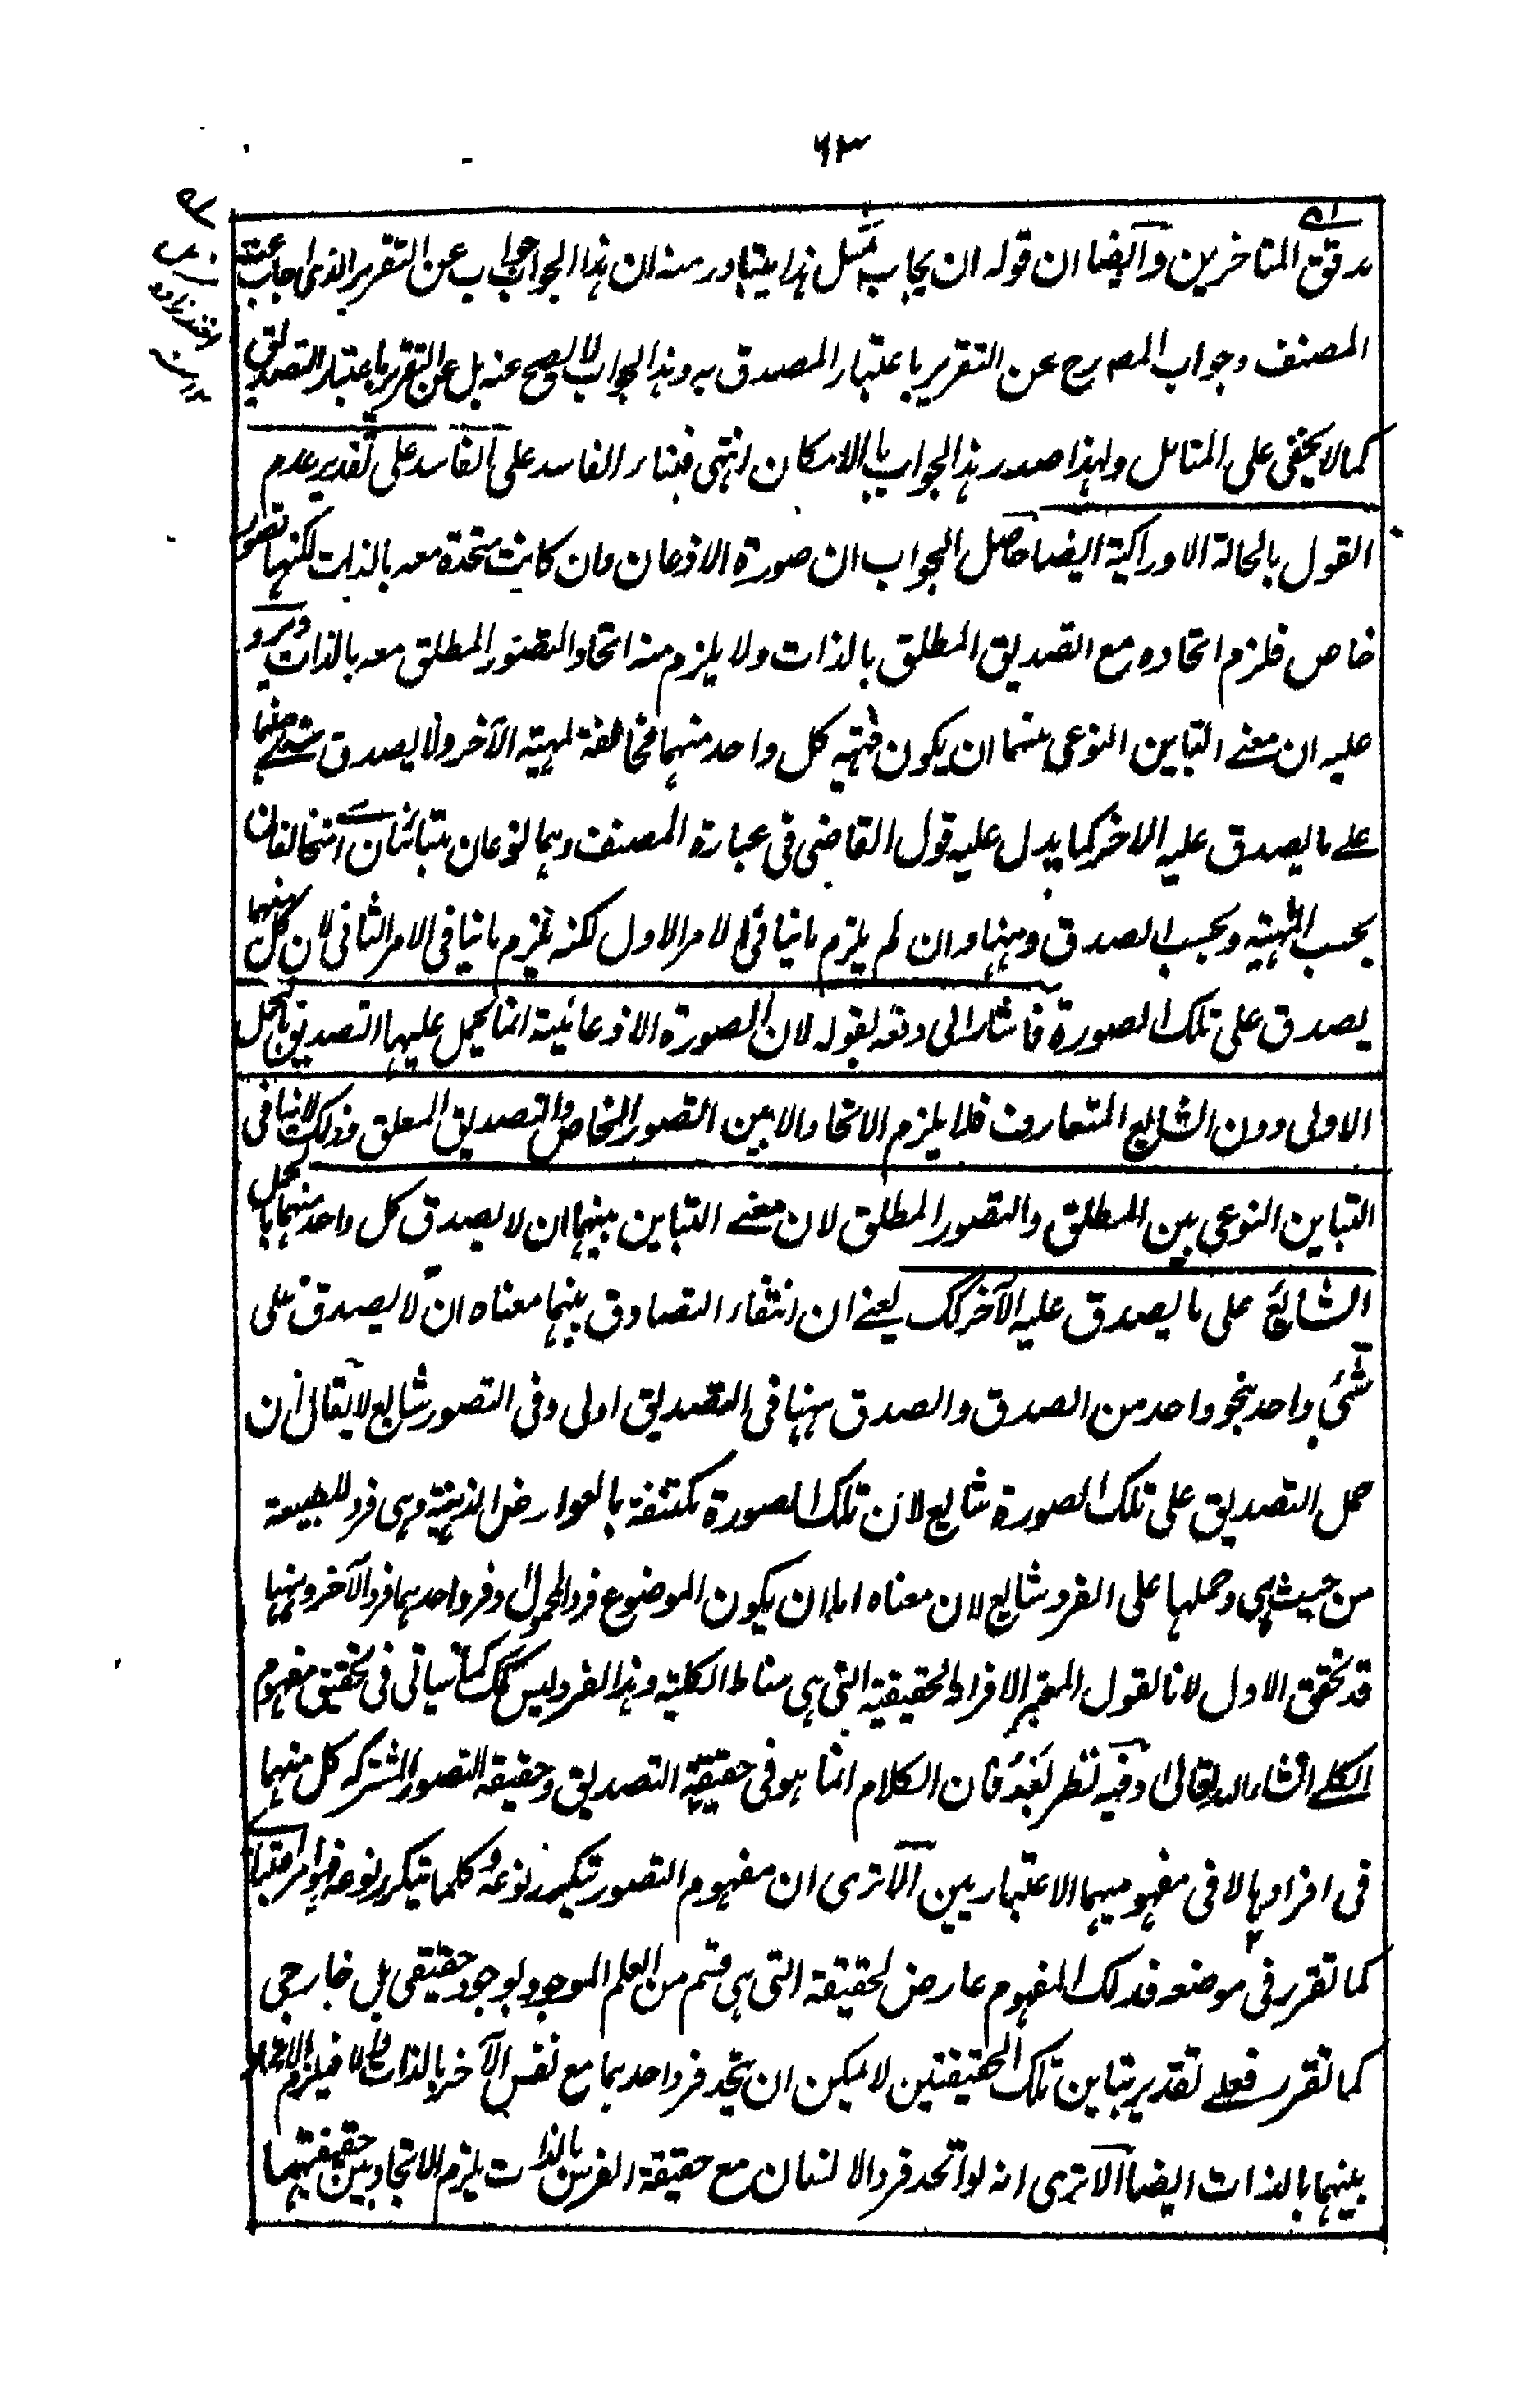 ٦٣
مدقق المتاخرين وايضا ان قوله ان يجاب بمثل هذا يتبادر منه ان هذا الجواب جواب عن التقرير الذى اجاب عنه
المصنف وجواب المصرح عن التقرير باعتبار المصدق به وهذا الجواب لا يصح عنه بل عن التقرير باعتبار التصديق
كما لا يخفى على المتامل ولهذا صدر هذا الجواب بالامكان انتهى فبناء الفاسد على الفاسد على تقدير عدم
القول بالحالة الادراكية ايضا حاصل الجواب ان صورة الاذعان وان كانت متحدة معه بالذات لكنها تصور
خاص فلزم اتحاده مع التصديق المطلق بالذات ولا يلزم منه اتحاد التصور المطلق معه بالذات ويرد
عليه ان معنے التباين النوعى بينهما ان يكون مهية كل واحد منهما مخالفة لمهية الآخر ولا يصدق شئے منهما
علے ما يصدق عليه الاخر كما يدل عليه قول القاضى فى عبارة المصنف وهما نوعان متبائنان اے متخالفان
بحسب المهية وبحسب الصدق وههنا وان لم يلزم ما ينافى الامر الاول لكنه يلزم ما ينافى الامر الثانى لان كل منهما
يصدق على تلك الصورة فاشار الى دفعه بقوله لان الصورة الاذعانية انما يحمل عليها التصديق بالحمل
الاولى دون الشايع المتعارف فلا يلزم الاتحاد الا بين التصور الخاص والتصديق المطلق وذلك لا ينافى
التباين النوعى بين المطلق والتصور المطلق لان معنے التباين بينهما ان لا يصدق كل واحد منهما بالحمل
الشائع على ما يصدق عليه الآخر كك يعنے ان انتفاء التصادق بينهما معناه ان لا يصدق على
شئ واحد بنحو واحد من الصدق والصدق ههنا فى التصديق اولى وفى التصور شايع لا يقال ان
حمل التصديق على تلك الصورة شايع لان تلك الصورة مكتنفة بالعوارض الذهنية وهى فرد للطبيعة
من حيث هى وحملها على الفرد شايع لان معناه اما ان يكون الموضوع فرد المحمول او فرد احدهما فرد الآخر وههنا
قد تحقق الاول لانا نقول المعتبر الافراد الحقيقية التى هى مناط الكلية وهذا الفرد ليس كك كما سياتى فى تحقيق مفهوم
الكلے انشاء الله تعالى وفيه نظر بعد فان الكلام انما هو فى حقيقة التصديق وحقيقة التصور المشتركة كل منهما
فى افرادها لا فى مفهوميهما الاعتباريين الا ترى ان مفهوم التصور يتكرر نوعه وكلما يتكرر نوعه فهو امر اعتبارى
كما تقرر فى موضعه فذلك المفهوم عارض لحقيقة التى هى قسم من العلم الموجود بوجود حقيقى بل خارجى
كما تقرر فعلے تقدير تباين تلك الحقيقتين لا يمكن ان يتحد فرد احدهما مع نفس الآخر بالذات والا فيلزم الاتحاد
بينهما بالذات ايضا الا ترى انه لو اتحد فرد الانسان مع حقيقة الفرس بالذات يلزم الاتحاد بين حقيقتيهما